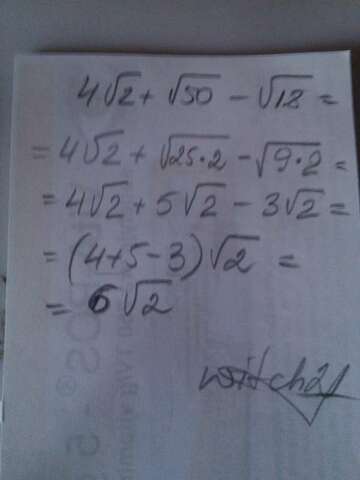 4√2 + √50 - √18 =
= 4√2 + √25·2 - √9·2 =
= 4√2 + 5√2 - 3√2 =
= (4+5-3)√2 =
= 6√2
witch21